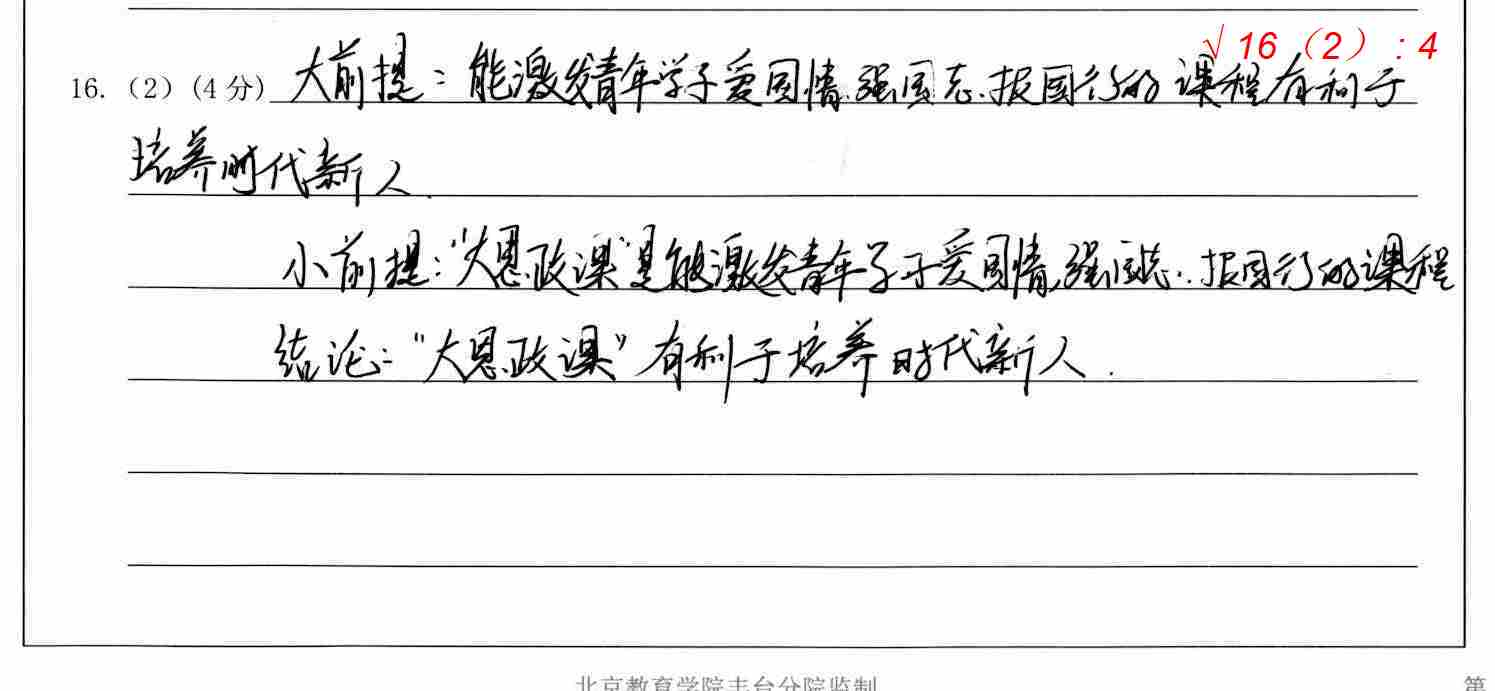 √ 16（2）: 4
16.（2）(4 分) 大前提：能激发青年学子爱国情.强国志.报国行的 课程有利于
培养时代新人.
小前提："大思政课"是能激发青年学子爱国情,强国志.报国行的课程
结论："大思政课"有利于培养时代新人.
北京教育学院丰台分院监制
第